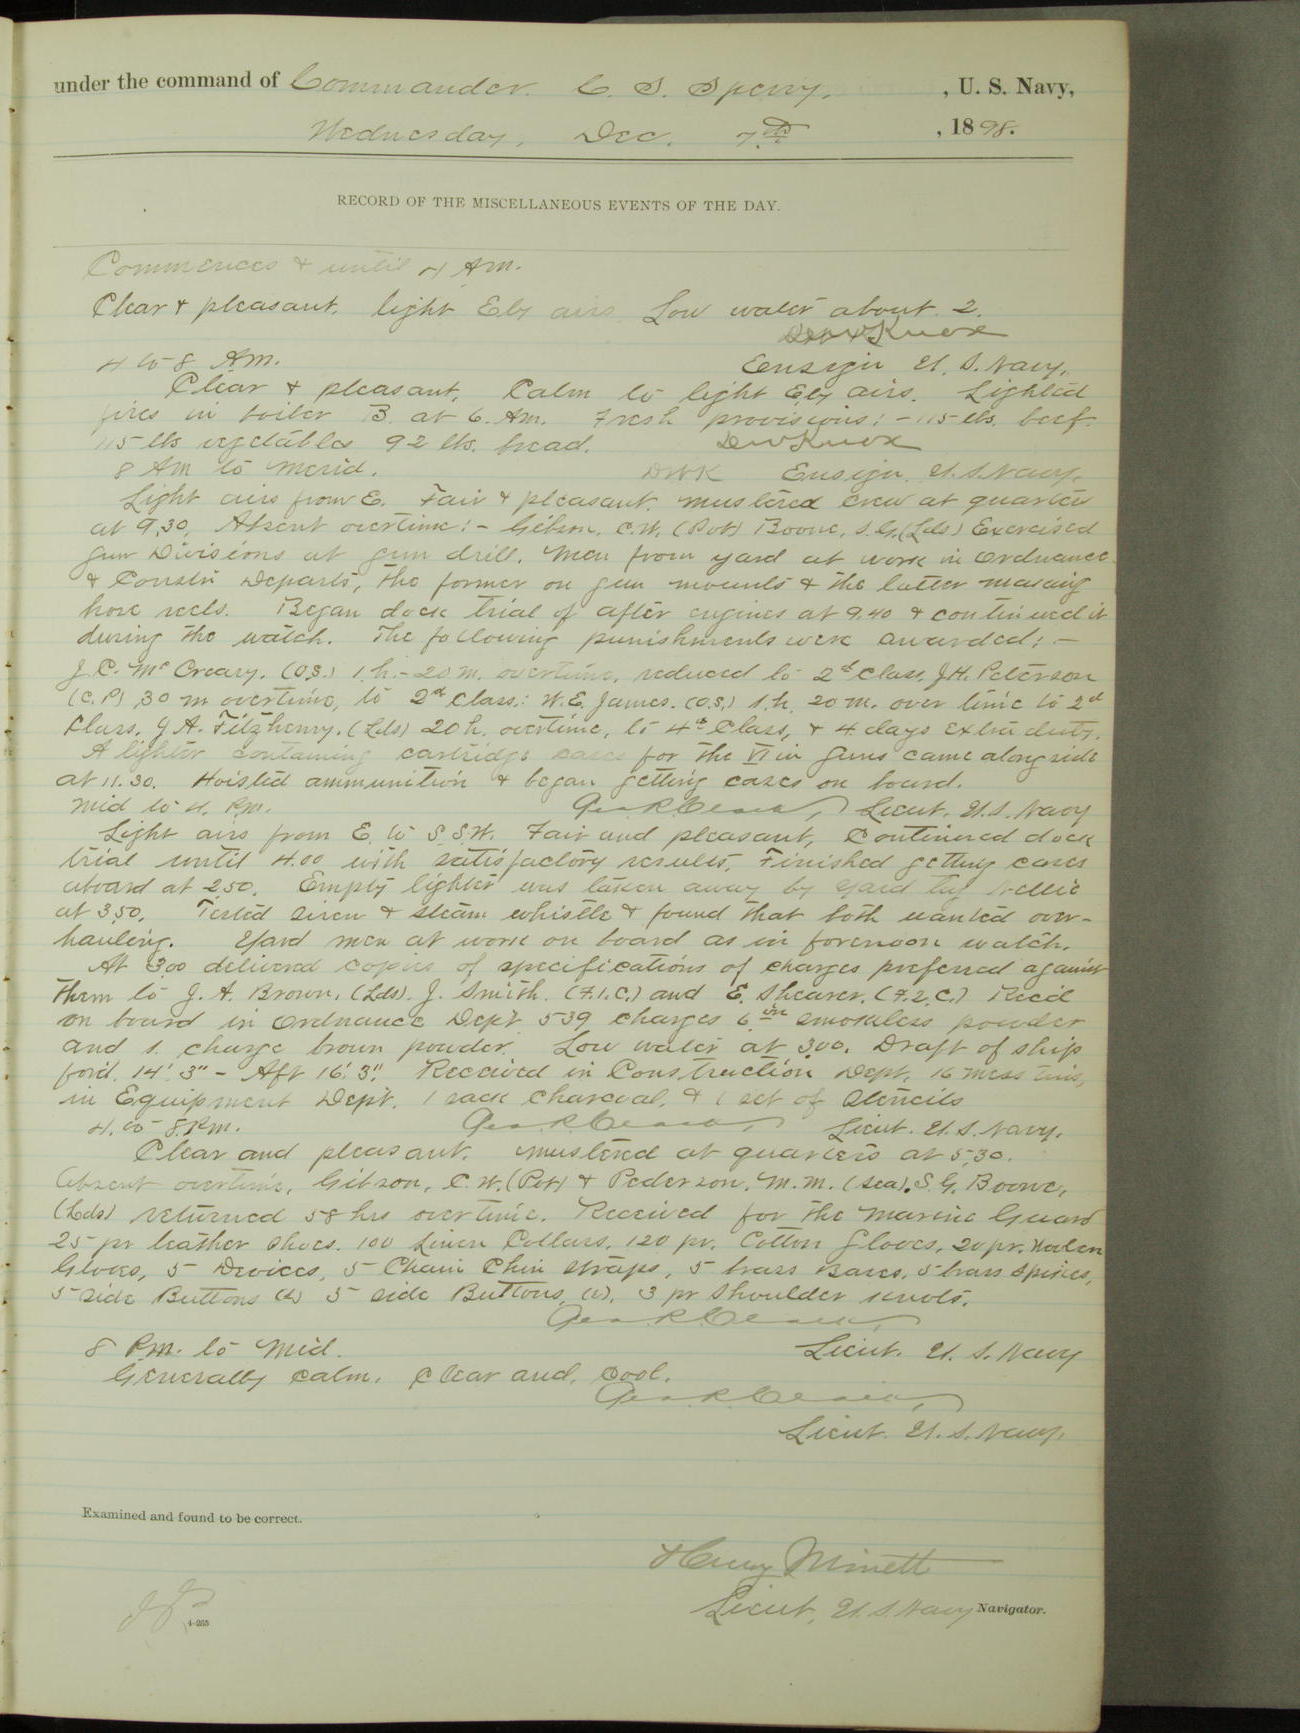 under the command of Commander. C. S. Sperry, , U. S. Navy,
Wednesday, Dec. 7th , 1898.
RECORD OF THE MISCELLANEOUS EVENTS OF THE DAY.
Commences & until 4 Am.
Clear & pleasant. light Ely airs Low water about 2.
DWKnox
4 to 8 Am. Ensign U. S. Navy.
Clear & pleasant, Calm to light Ely airs. Lighted
fires in boiler B at 6. Am. Fresh provisions: - 115 lbs. beef.
115 lbs vegetables 92 lbs. bread. DWKnox
8 Am to Merid. DWK Ensign. U.S. Navy.
Light airs from E. Fair & pleasant. mustered crew at quarters
at 9.30, Absent overtime: - Gibson, C.W. (Pot) Boone, S.G. (Lds) Exercised
gun Divisions at gun drill. Men from yard at work in Ordnance
& Constn Departs, the former on gun mounts & the latter making
hose reels. Began dock trial of after engines at 9.40 & continued it
during the watch. The following punishments were awarded: -
J. C. McCreary. (O.S.) 1 h. - 20 m. overtime, reduced to 2d Class, J.H. Peterson
(C.P) 30 m overtime, to 2d Class: W. E. James. (O.S.) 1 h. 20 m. over time to 2d
Class. J A. Fitzhenry. (Lds) 20 h. overtime, to 4th Class, & 4 days extra duty.
A lighter containing cartridge cases for the VI in guns came alongside
at 11.30. Hoisted ammunition & began getting cases on board.
Mid to 4. Pm. Lieut. U.S. Navy
Light airs from E. to S. S.W. Fair and pleasant, Continued dock
trial until 4.00 with satisfactory results, Finished getting cases
aboard at 2.50. Empty lighter was taken away by yard tug Nellie
at 3.50. Tested siren & steam whistle & found that both wanted over-
hauling. Yard men at work on board as in forenoon watch.
At 3.00 delivered copies of specifications of charges preferred against
them to J. A. Brown, (Lds). J. Smith. (F.1.C.) and E. Shearer. (F.2.C.) Rec'd
on board in Ordnance Dept 539 charges 6 in smokeless powder
and 1. charge brown powder. Low water at 3.00. Draft of ship
for'd. 14'. 3" - Aft 16'. 3". Received in Construction Dept, 16 mess tins,
in Equipment Dept. 1 sack Charcoal, & 1 set of Stencils
4. to 8. Pm. Lieut. U. S. Navy.
Clear and pleasant. mustered at quarters at 5.30.
Absent overtime, Gibson, C. W. (Pot) & Pederson, M. M. (Sea). S. G. Boone,
(Lds) returned 58 hrs overtime. Received for the Marine Guard
25 pr leather shoes. 100 Linen Collars. 120 pr. Cotton Gloves, 20 pr. Woolen
Gloves, 5 Devices, 5 Chain Chin Straps, 5 brass Bases, 5 brass Spikes,
5 side Buttons 5 side Buttons, 3 pr Shoulder Knots.
8 Pm. to Mid. Lieut. U. S. Navy
Generally calm. Clear and, cool.
Lieut. U. S. Navy.
Examined and found to be correct.
Henry Minett
Lieut, U. S. Navy Navigator.
4-265